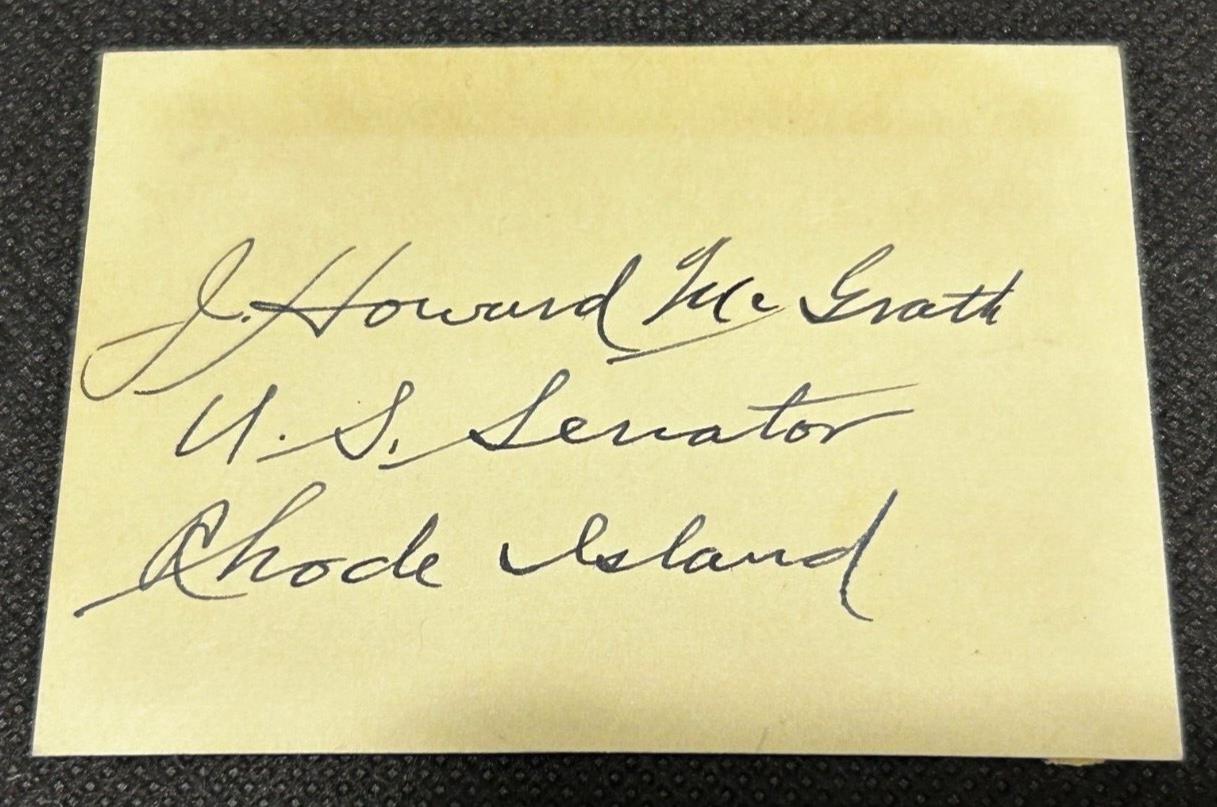 J. Howard McGrath
U. S. Senator
Rhode Island